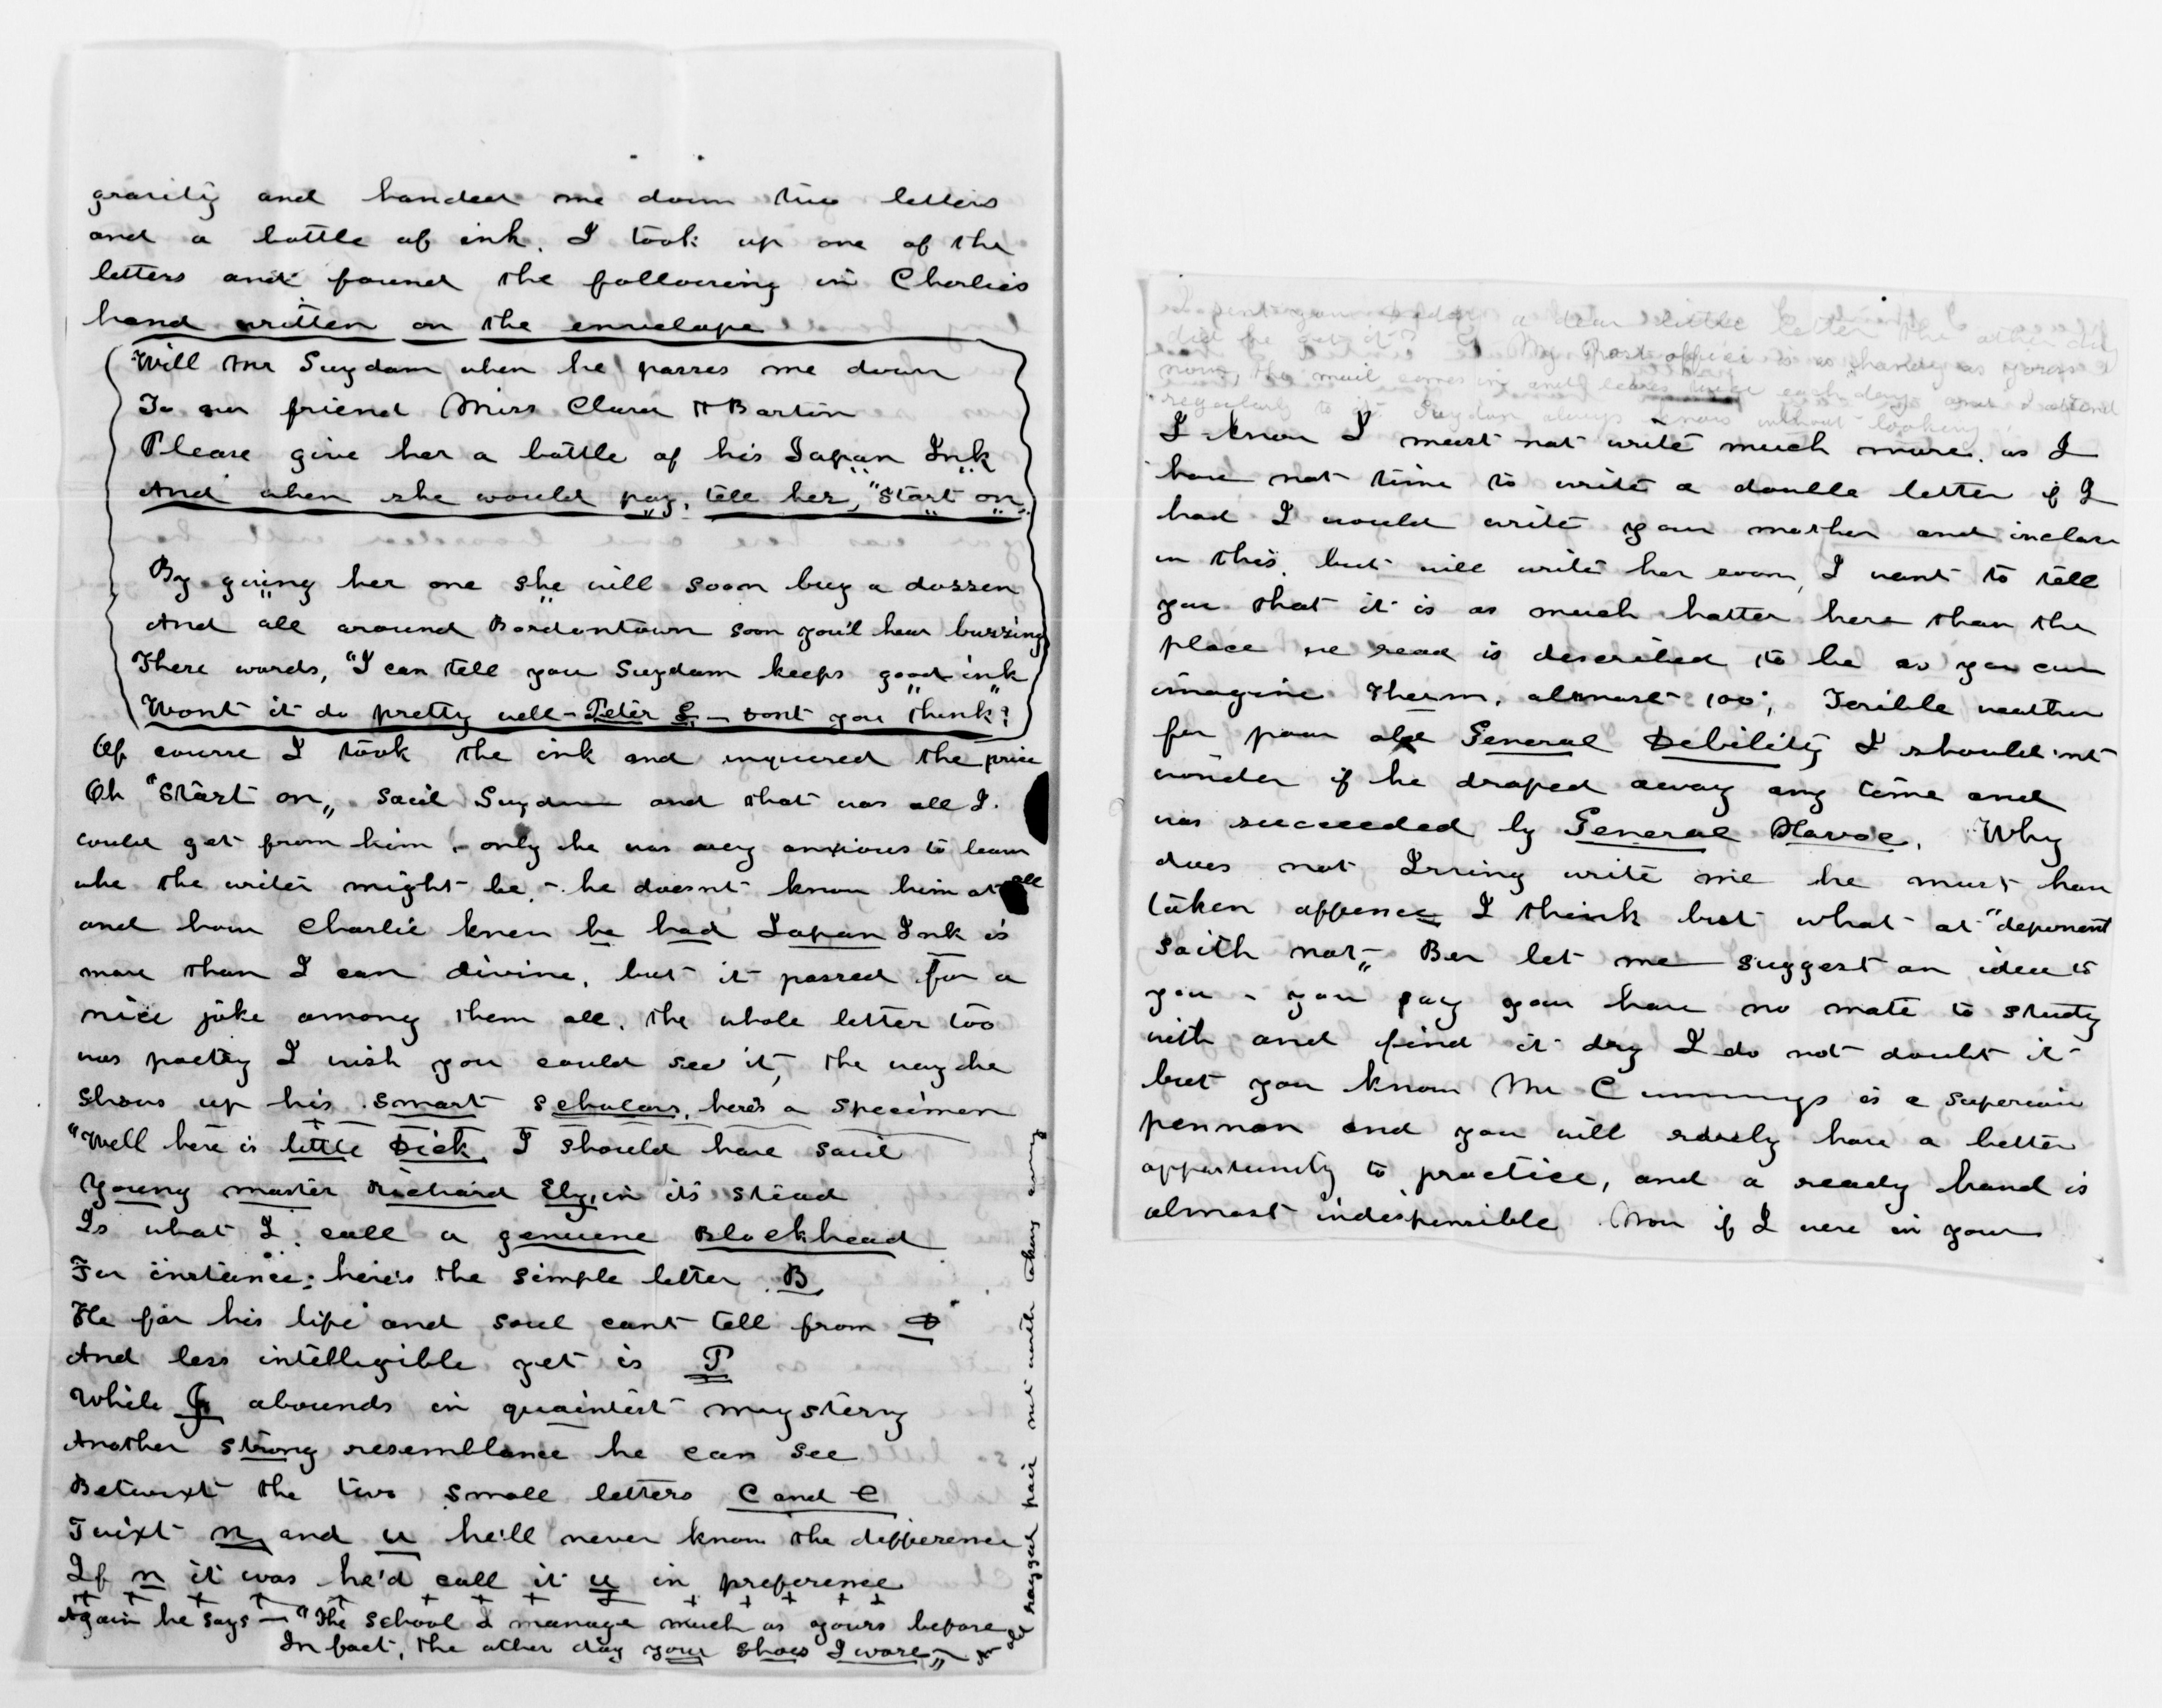 gravity and handed me down two letters
and a bottle of ink. I took up one of the
letters and found the following in Charlies
hand written on the envelope
Will Mr Suydam when he passes me down
To our friend Miss Clara H Barton
Please give her a bottle of his Japan Ink
And when she would pay, tell her, "Start on"
By giving her one she will soon buy a dozzen
And all around Bordentown soon you'll hear buzzing
These words, "I can tell you Suydam keeps good ink"
Wont it do pretty well - Peter S, - dont you think?
Of course I took the ink and inquired the price
Oh "Start on" said Suydam and that was all I
could get from him - only he was very anxious to learn
who the writer might be, - he doesnt know him at all
and how Charlie knew he had Japan Ink is
more than I can divine, but it passed for a
nice joke among them all, the whole letter too
was poetry I wish you could see it, the way he
shows up his smart scholars, here's a specimen
"Well here is little Dick, I should have said
Young master Richard Ely, in its stead
Is what I call a genuine Blockhead
For instance; here's the simple letter B
He for his life and soul cant tell from D
And less intelligible yet is P
While G abounds in quaintest mystery
Another strong resemblance he can see
Betwixt the two small letters C and e
Twixt n and u he'll never know the difference
If n it was he'd call it u in preference
Again he says - "The school I manage much as yours before
In fact, the other day your shoes I wore" -
An old ragged pair not worth taking away
I sent your a dear little letter the other day
did he get it? My Post office is as handy as yours
now, the mail comes in and leaves twice each day and I attend
regularly to it Suydam always knows without looking
I know I must not write much more. as I
have not time to write a double letter if I
had I would write your mother and inclose
in this, but will write her soon, I want to tell
you that it is as much hotter here than the
place we read is described to be as you can
imagine Therm, almost 100°, Terible weather
for poor old General Debility I should'nt
wonder if he droped away any time and
was succeeded by General Havoc. Why
does not Irving write me he must have
taken offence I think but what at "deponent
saith not" Ber let me suggest an idea to
you - you say you have no mate to study
with and find it dry I do not doubt it -
but you know Mr Cummings is a superior
penman and you will rarely have a better
opportunity to practice, and a ready hand is
almost indispensible. Now if I were in your